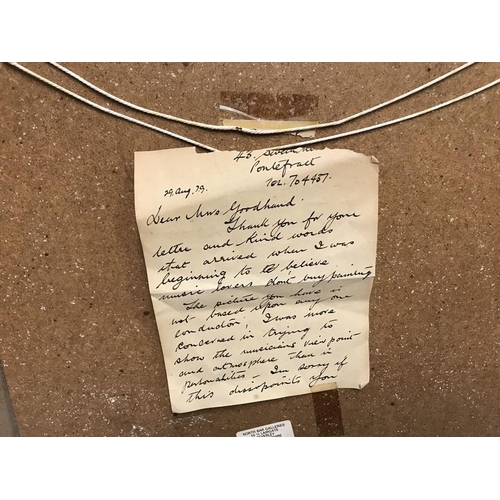 Pontefract
29, Aug, 79.
TEL. 704457.
Dear Mrs Goodhand.
Thank you for your
letter and kind words
that arrived when I was
beginning to believe
music lovers don't buy painting
The picture you have is
not based upon any one
conductor, I was more
concerned in trying to
show the musicians view point
and atmosphere than in
personalities - I'm sorry if
this disappoints you
NORTH BAR GALLERIES